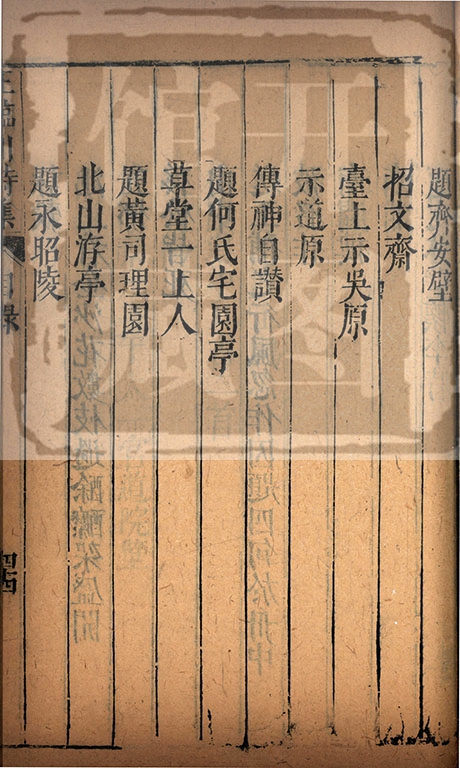 題齊安壁
招文齋
臺上示吳原
示道原
傳神自讚
題何氏宅園亭
草堂一上人
題黃司理園
北山游亭
題永昭陵
王臨川詩集 目錄 四四